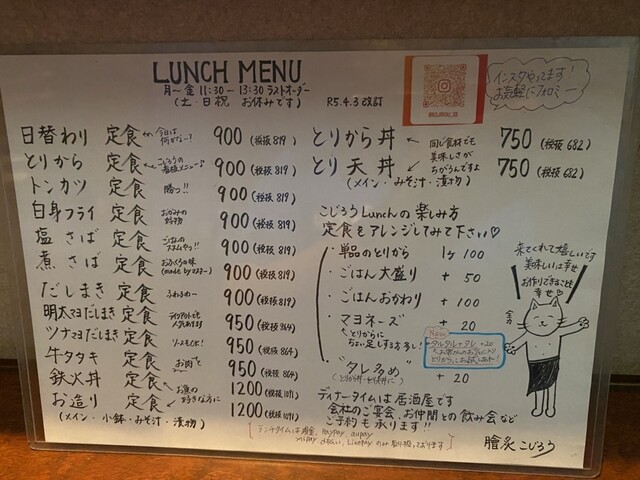 LUNCH MENU
月～金 11:30～13:30 ラストオーダー
(土・日祝 お休みです)
R5.4.3改訂
インスタやってます!
お気軽にフォロミー
日替わり 定食 今日は何かな～? 900 (税抜 819)
とりから 定食 こじろうの看板メニュー♪ 900 (税抜 819)
トンカツ 定食 勝つ!! 900 (税抜 819)
白身フライ 定食 900 (税抜 819)
塩さば 定食 900 (税抜 819)
煮さば 定食 おふくろの味 (made by マスター) 900 (税抜 819)
だしまき 定食 ふわふわ～ 900 (税抜 819)
明太マヨだしまき 定食 950 (税抜 864)
ツナマヨだしまき 定食 950 (税抜 864)
牛タタキ 定食 お肉で 950 (税抜 864)
鉄火丼 お魚の 1200 (税抜 1091)
お造り 定食 好きな方に 1200 (税抜 1091)
(メイン・小鉢・みそ汁・漬物)
とりから丼 同じ食材でも 750 (税抜 682)
とり天丼 美味しさがちがうんですよ 750 (税抜 682)
(メイン・みそ汁・漬物)
こじろうLunchの楽しみ方
定食をアレンジしてみて下さい♡
・単品のとりから 1ヶ 100
・ごはん大盛り + 50
・ごはんおかわり + 100
・マヨネーズ 20
とりからにちょい足しする方多し!
New
タルタルソース +20
・"タレ多め" + 20
来てくれて嬉しいです
美味しいは幸せ
お作りできること幸せ♡
全力
ディナータイムは居酒屋です
会社のご宴会、お仲間との飲み会など
ご予約も承ります!!
ランチタイムは現金、PayPay、auPay
d払い、LinePayのみ取り扱っております
膾炙こじろう